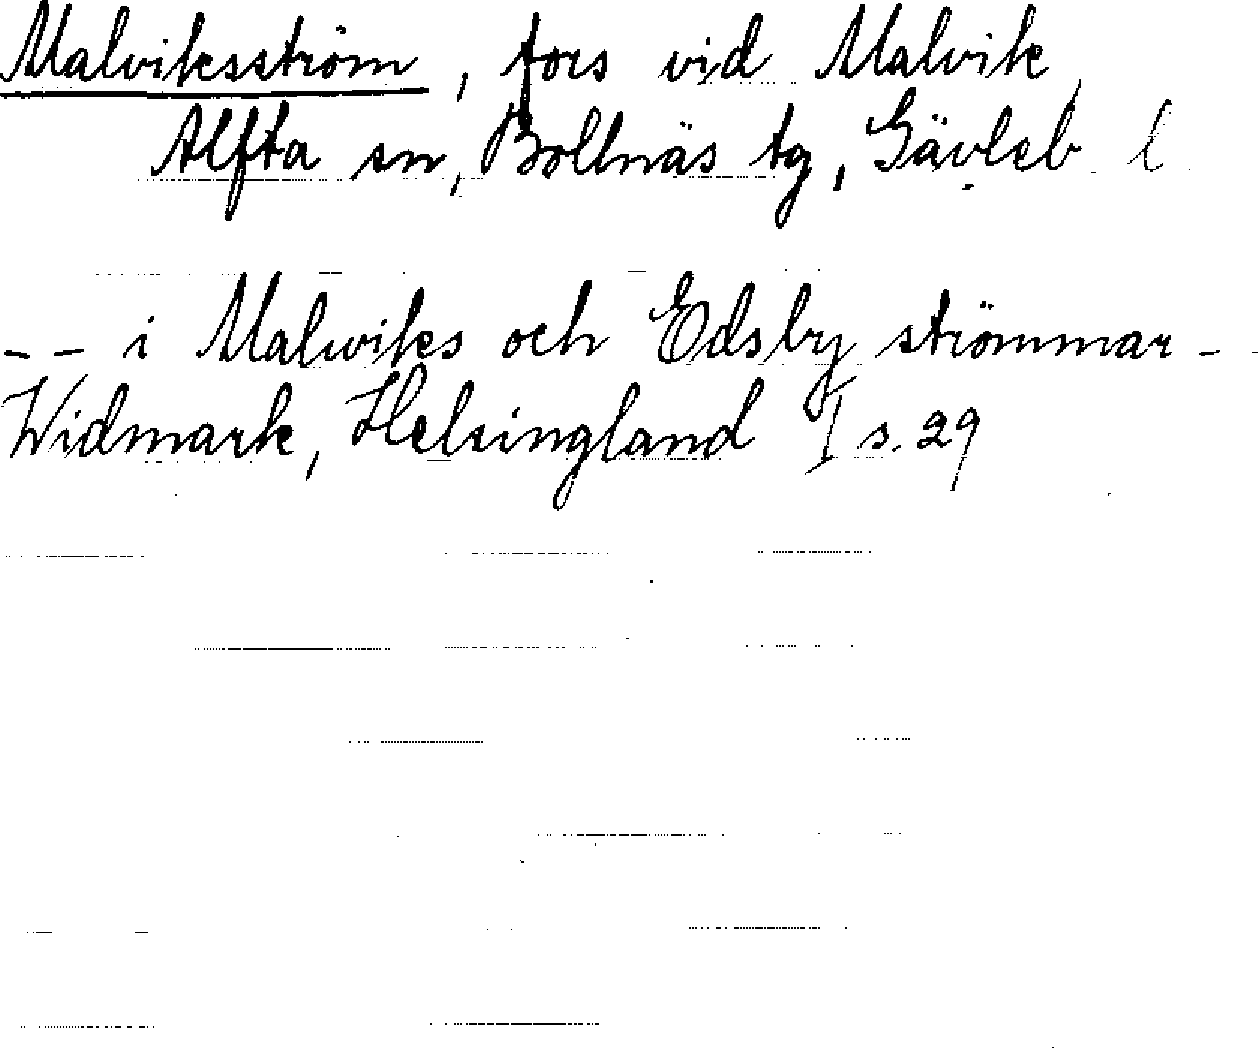 Malviksström, fors vid Malvik,
Alfta sn, Bollnäs tg, Gävleb l
-- i Malwiks och Edsby strömmar --
Widmark, Helsingland I s. 29